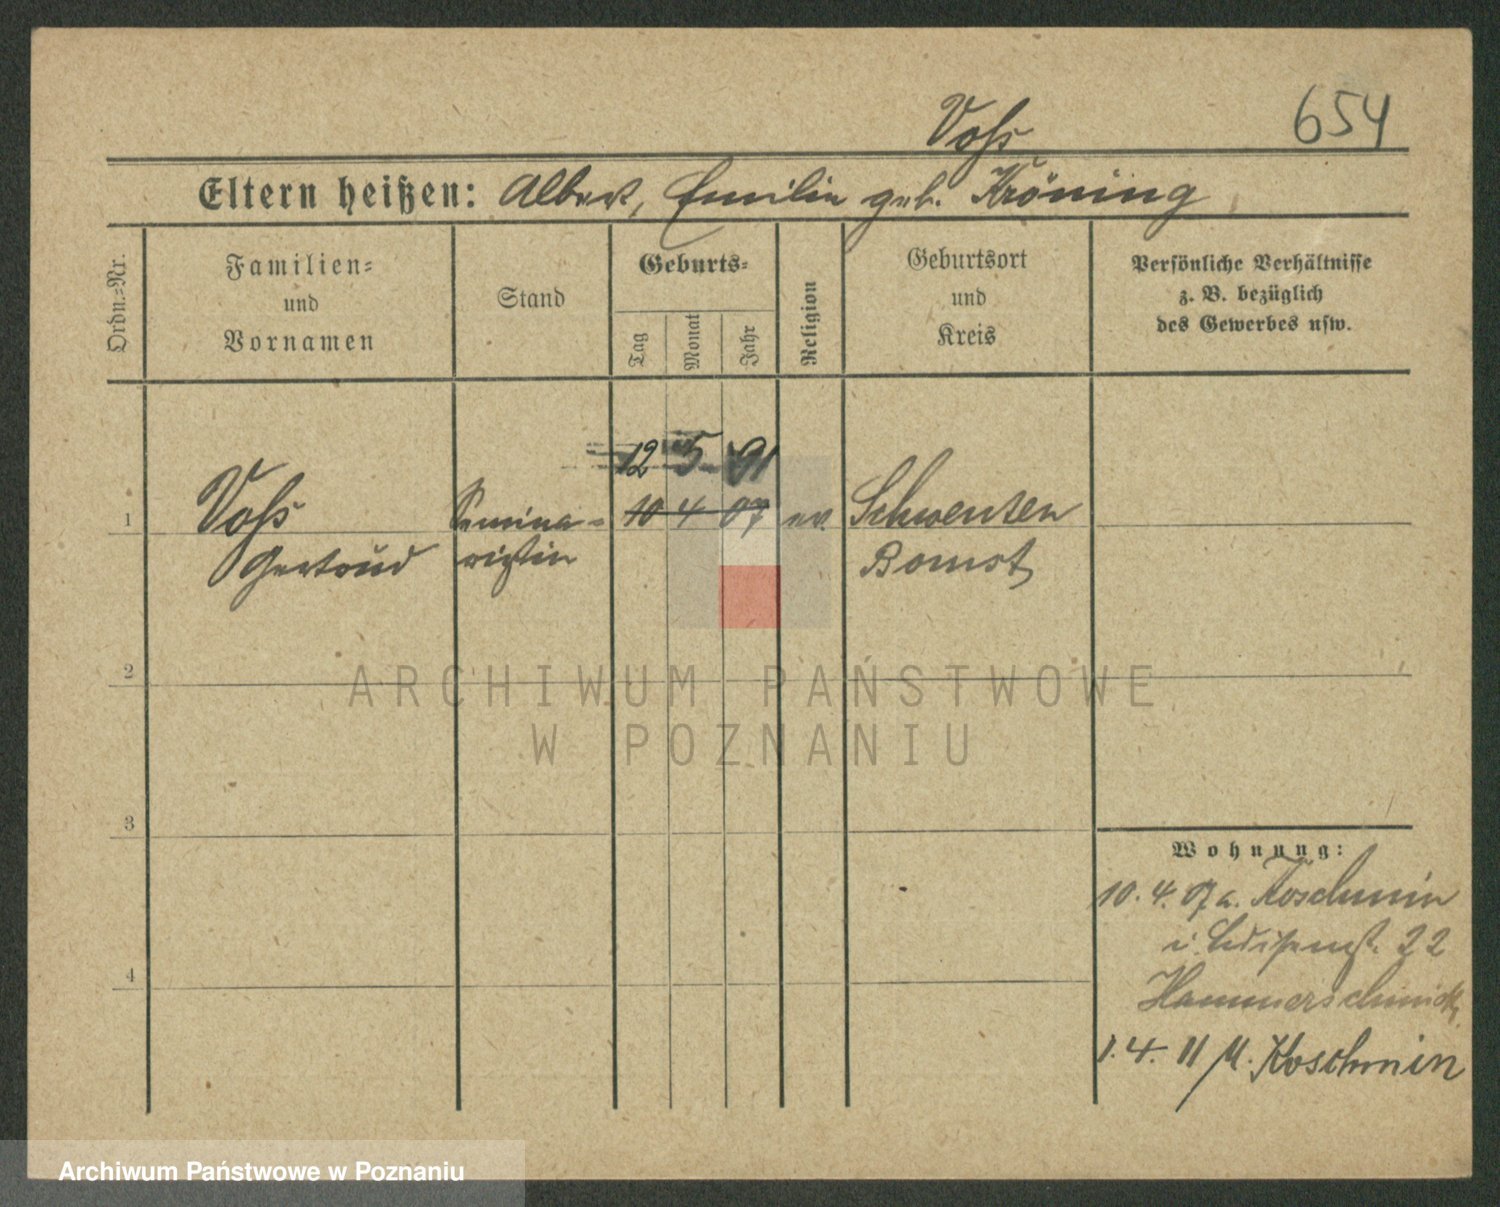 654
Voß
Eltern heißen: Albert, Emilie geb. Kröning
Ordn.-Nr.
Familien-
und
Vornamen
Stand
Geburts-
Tag
Monat
Jahr
Religion
Geburtsort
und
Kreis
Persönliche Verhältnisse
z. B. bezüglich
des Gewerbes usw.
12 5 91
1 Voß Semina- 10 4 07 ev. Schwenten
Gertrud ristin Bomst
2
3
4
Wohnung:
10. 4. 07 a. Koschmin
22
Hammerschmidt
1. 4. 11 Koschmin
ARCHIWUM PAŃSTWOWE
W POZNANIU
Archiwum Państwowe w Poznaniu